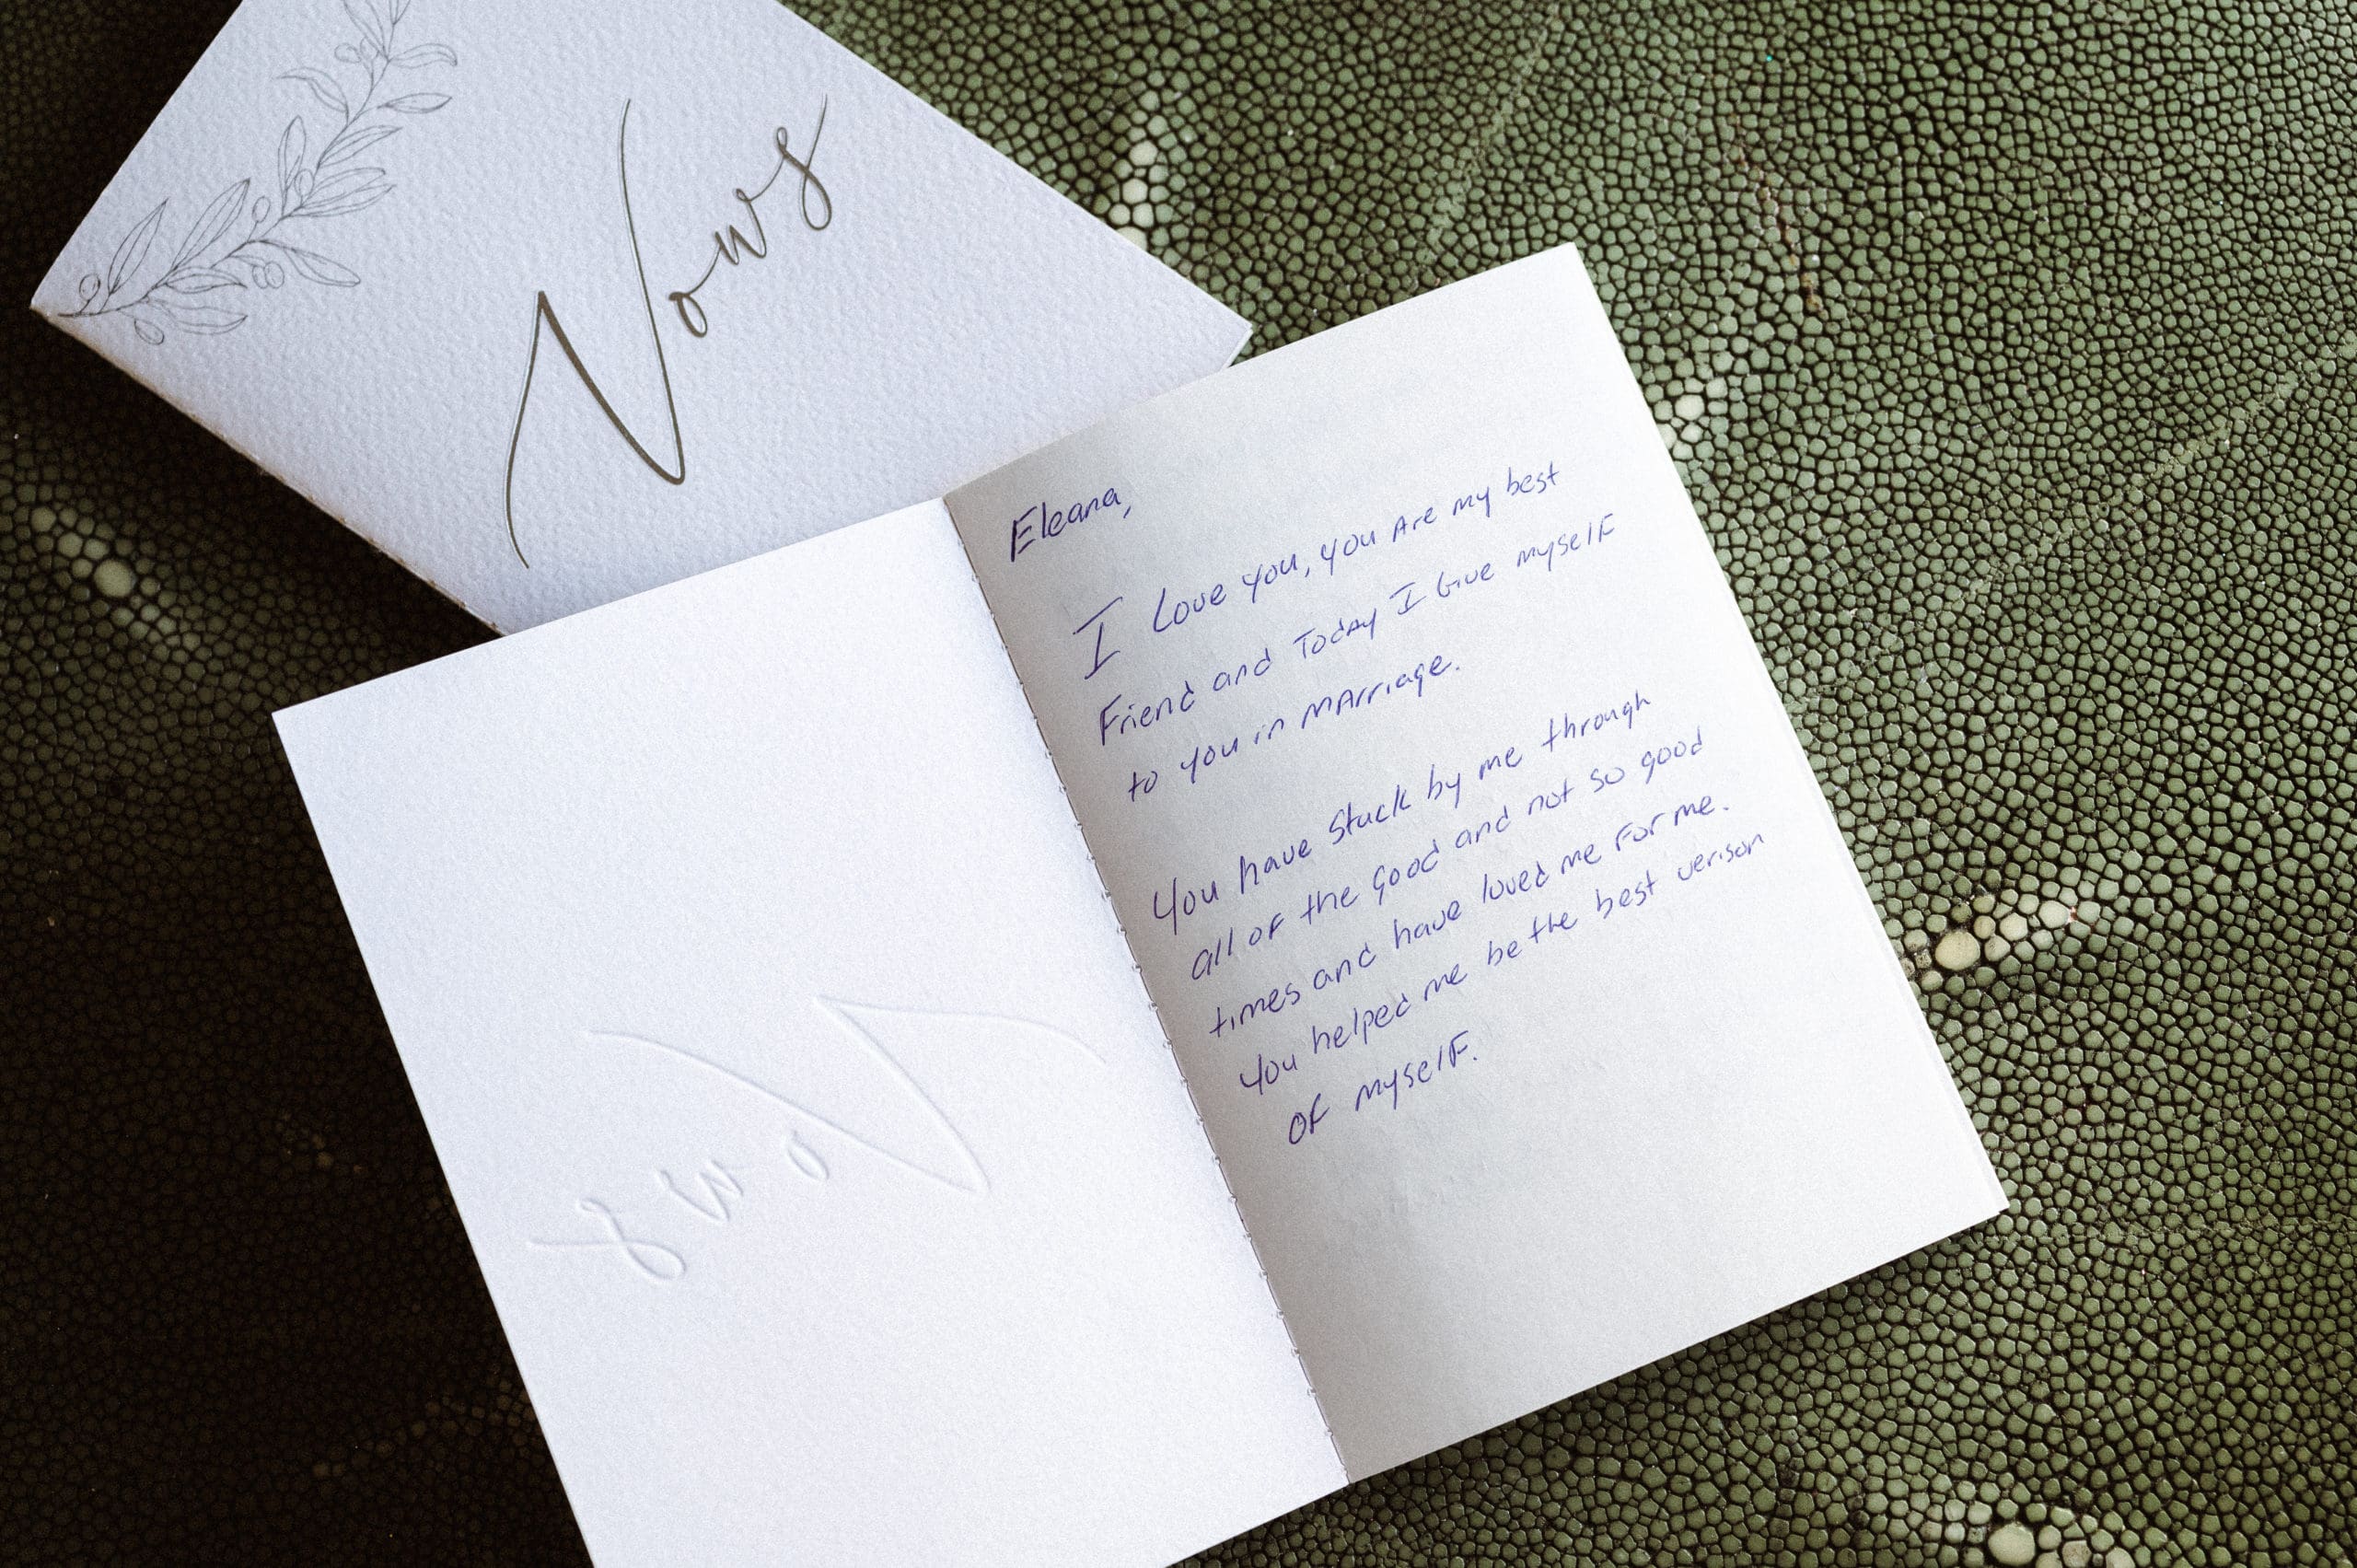 Vows
Eleana,
I Love you, you Are my best
Friend and Today I Give myself
to you in mArriage.
You have Stuck by me through
all of the Good and not so good
times and have loved me for me.
You helped me be the best verison
of myself.
Vows